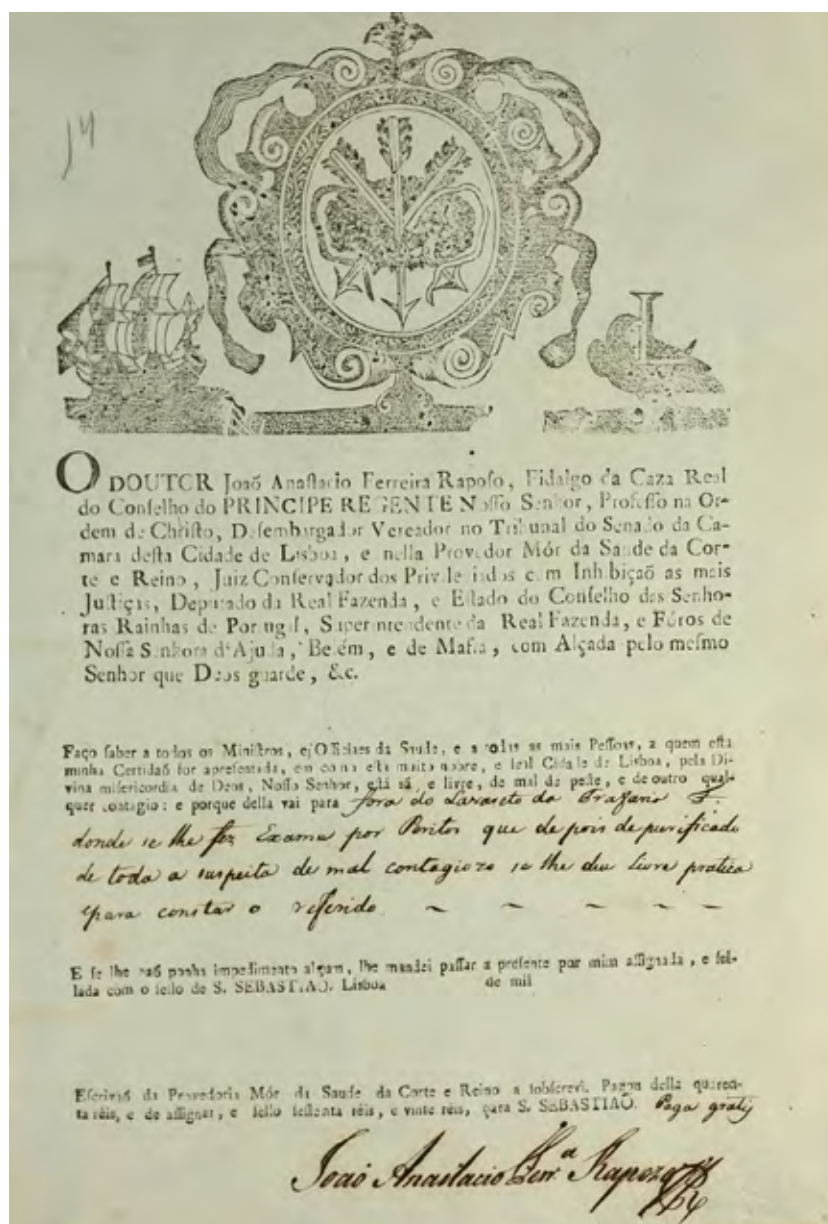 14
O DOUTOR Joaõ Anaſtacio Ferreira Rapoſo, Fidalgo da Caza Real
do Conſelho do PRINCIPE REGENTE Noſſo Senhor, Profeſſo na Or-
dem de Chriſto, Deſembargador Vereador no Tribunal do Senado da Ca-
mara deſta Cidade de Lisboa, e nella Provedor Mór da Saude da Cor-
te e Reino, Juiz Conſervador dos Privilegiados com Inhibiçaõ as mais
Juſtiças, Deputado da Real Fazenda, e Eſtado do Conſelho das Senho-
ras Rainhas de Portugal, Superintendente da Real Fazenda, e Fóros de
Noſſa Senhora d'Ajuda, Belém, e de Mafra, com Alçada pelo meſmo
Senhor que Deos guarde, &c.
Faço ſaber a todos os Miniſtros, e Officiaes da Saude, e a todas as mais Peſſoas, a quem eſta
minha Certidaõ for apreſentada, em como eſta muito nobre, e leal Cidade de Lisboa, pela Di-
vina miſericordia de Deos, Noſſo Senhor, eſtá sã, e livre, de mal de peſte, e de outro qual-
quer contagio: e porque della vai para fora do Lazareto da Trafaria
donde se lhe fez Exame por Peritos que depois de purificado
de toda a suspeita de mal contagiozo se lhe deu livre pratica
para constar o referido ~ ~ ~ ~ ~
E ſe lhe naõ ponha impedimento algum, lhe mandei paſſar a preſente por mim aſſignada, e ſel-
lada com o ſello de S. SEBASTIAÕ. Lisboa de mil
Eſcrivaõ da Provedoria Mór da Saude da Corte e Reino a ſobſcrevi. Pagou deſta quaren-
ta réis, e de aſſignar, e ſello ſeſſenta réis, e vinte réis, para S. SEBASTIAÕ. Paga gratis
Joaõ Anastacio Ferr.ª Rapozo